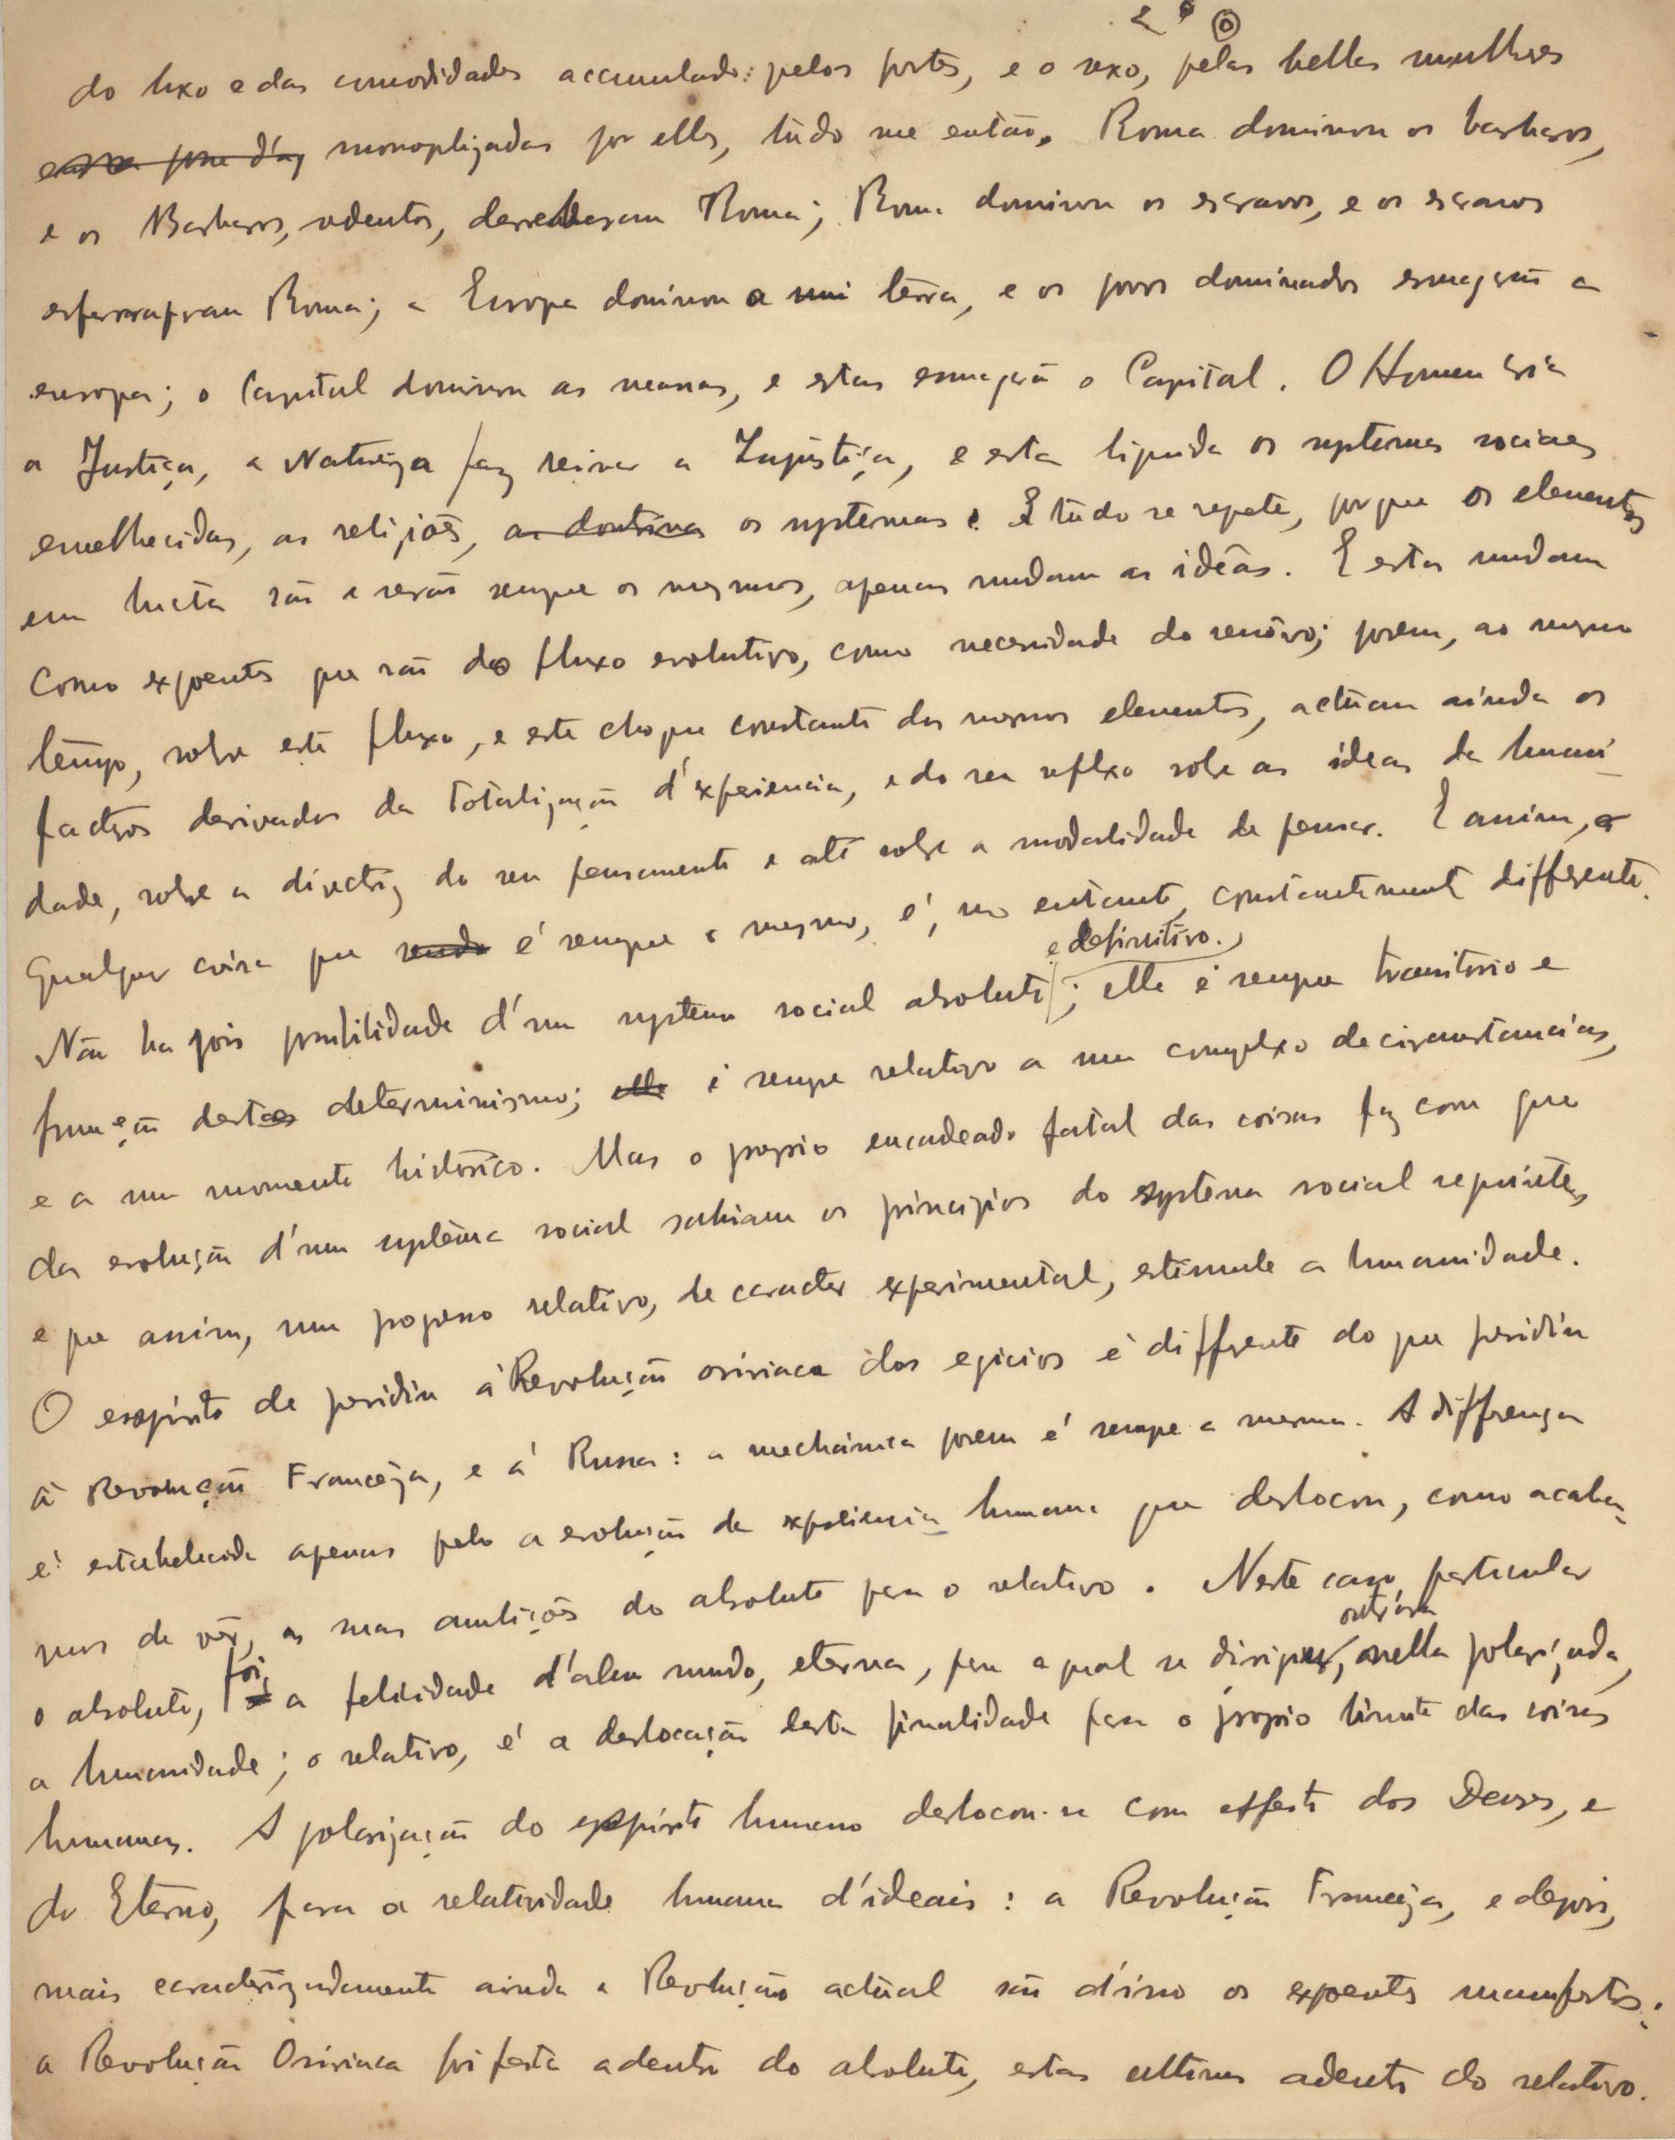 2º
do luxo e das comodidades accumuladas pelos fortes, e o sexo, pelas bellas mulheres
monoplizadas por elles, tudo me então. Roma dominou os barbaros,
e os Barbaros, sedentos, derrubaram Roma; Roma dominou os escravos, e os escravos
Roma; a Europa dominou a terra, e os povos dominados esmagam a
europa; o Capital dominou as massas, e estas esmagarão o Capital. O Homem cria
a Justiça, a Natureza faz reinar a Injustiça, e esta liquida os systemas sociaes
envelhecidos, as religiões, as doutrinas os systemas. E tudo se repete, porque os elementos
em lucta são e serão sempre os mesmos, apenas mudam as idéas. E estas mudam
como expoentes que são do fluxo evolutivo, como necessidade do renôvo; porem, ao mesmo
tempo, sobre este fluxo, e este choque constante dos mesmos elementos, actuam ainda os
factores derivados da totalização d'experiencia, e do seu reflexo sobre as ideas da humani-
dade, sobre a directriz do seu pensamento e até sobre a modalidade de pensar. E assim, a
qualquer coisa que sendo é sempre o mesmo, é, no entanto, constantemente differente.
e definitivo.
Não ha pois possibilidade d'um systema social absoluto; elle é sempre transitorio e
funcção destes determinismo; elle é sempre relativo a um complexo de circumstancias,
e a um momento historico. Mas o proprio encadeado fatal das coisas faz com que
da evolução d'um systema social saiham os principios do systema social seguinte,
e que assim, um progresso relativo, de caracter experimental, estimule a humanidade.
O espirito que presidiu á Revolução osiriaca dos egicios é differente do que presidiu
á Revolução Franceza, e á Russa: a mechanica porem é sempre a mesma. A differença
é estabelecida apenas pela a evolução da experiencia humana que deslocou, como acaba-
mos de vêr, as suas ambições do absoluto para o relativo. Neste caso, particular
outróra
o absoluto, foi a felicidade d'alem mundo, eterna, para a qual se dirigiu, nella polarizada,
a humanidade; o relativo, é a deslocação desta finalidade para o proprio limite das coisas
humanas. A polarização do espirito humano deslocou-se com effeito dos Deuses, e
do Eterno, para a relatividade humana d'ideais: a Revolução Franceza, e depois,
mais caracterizadamente ainda a Revolução actual são d'isso os expoentes manifestos:
a Revolução Osiriaca foi feita adentro do absoluto, estas ultimas adentro do relativo.